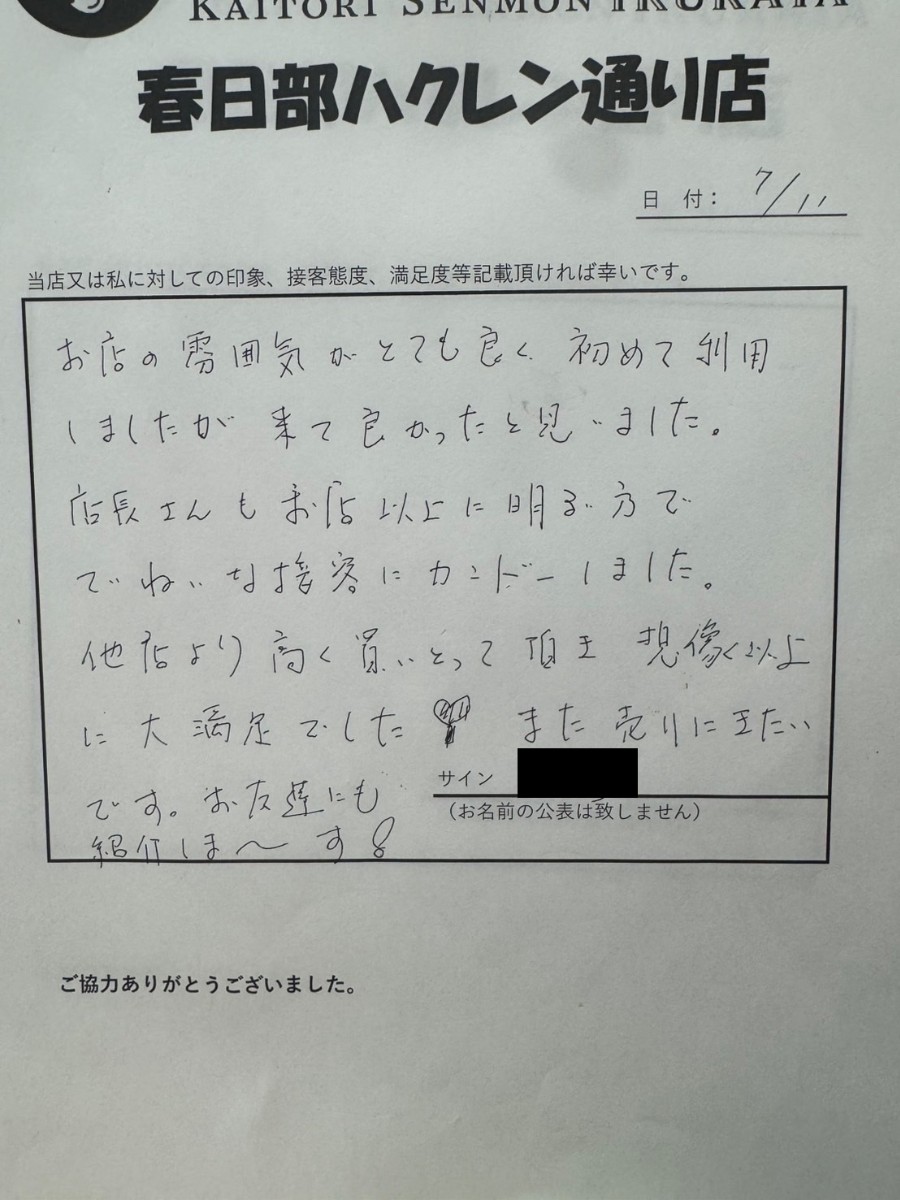 KAITORI SENMON IKUKATA
春日部ハクレン通り店
日 付： 7/11
当店又は私に対しての印象、接客態度、満足度等記載頂ければ幸いです。
お店の雰囲気がとても良く、初めて利用
しましたが来て良かったと思いました。
店長さんもお店以上に明るい方で
ていねいな接客にカンドーしました。
他店より高く買いとって頂き想像く以上
に大満足でした また売りにきたい
サイン
です。お友達にも
（お名前の公表は致しません）
紹介しま〜す!
ご協力ありがとうございました。